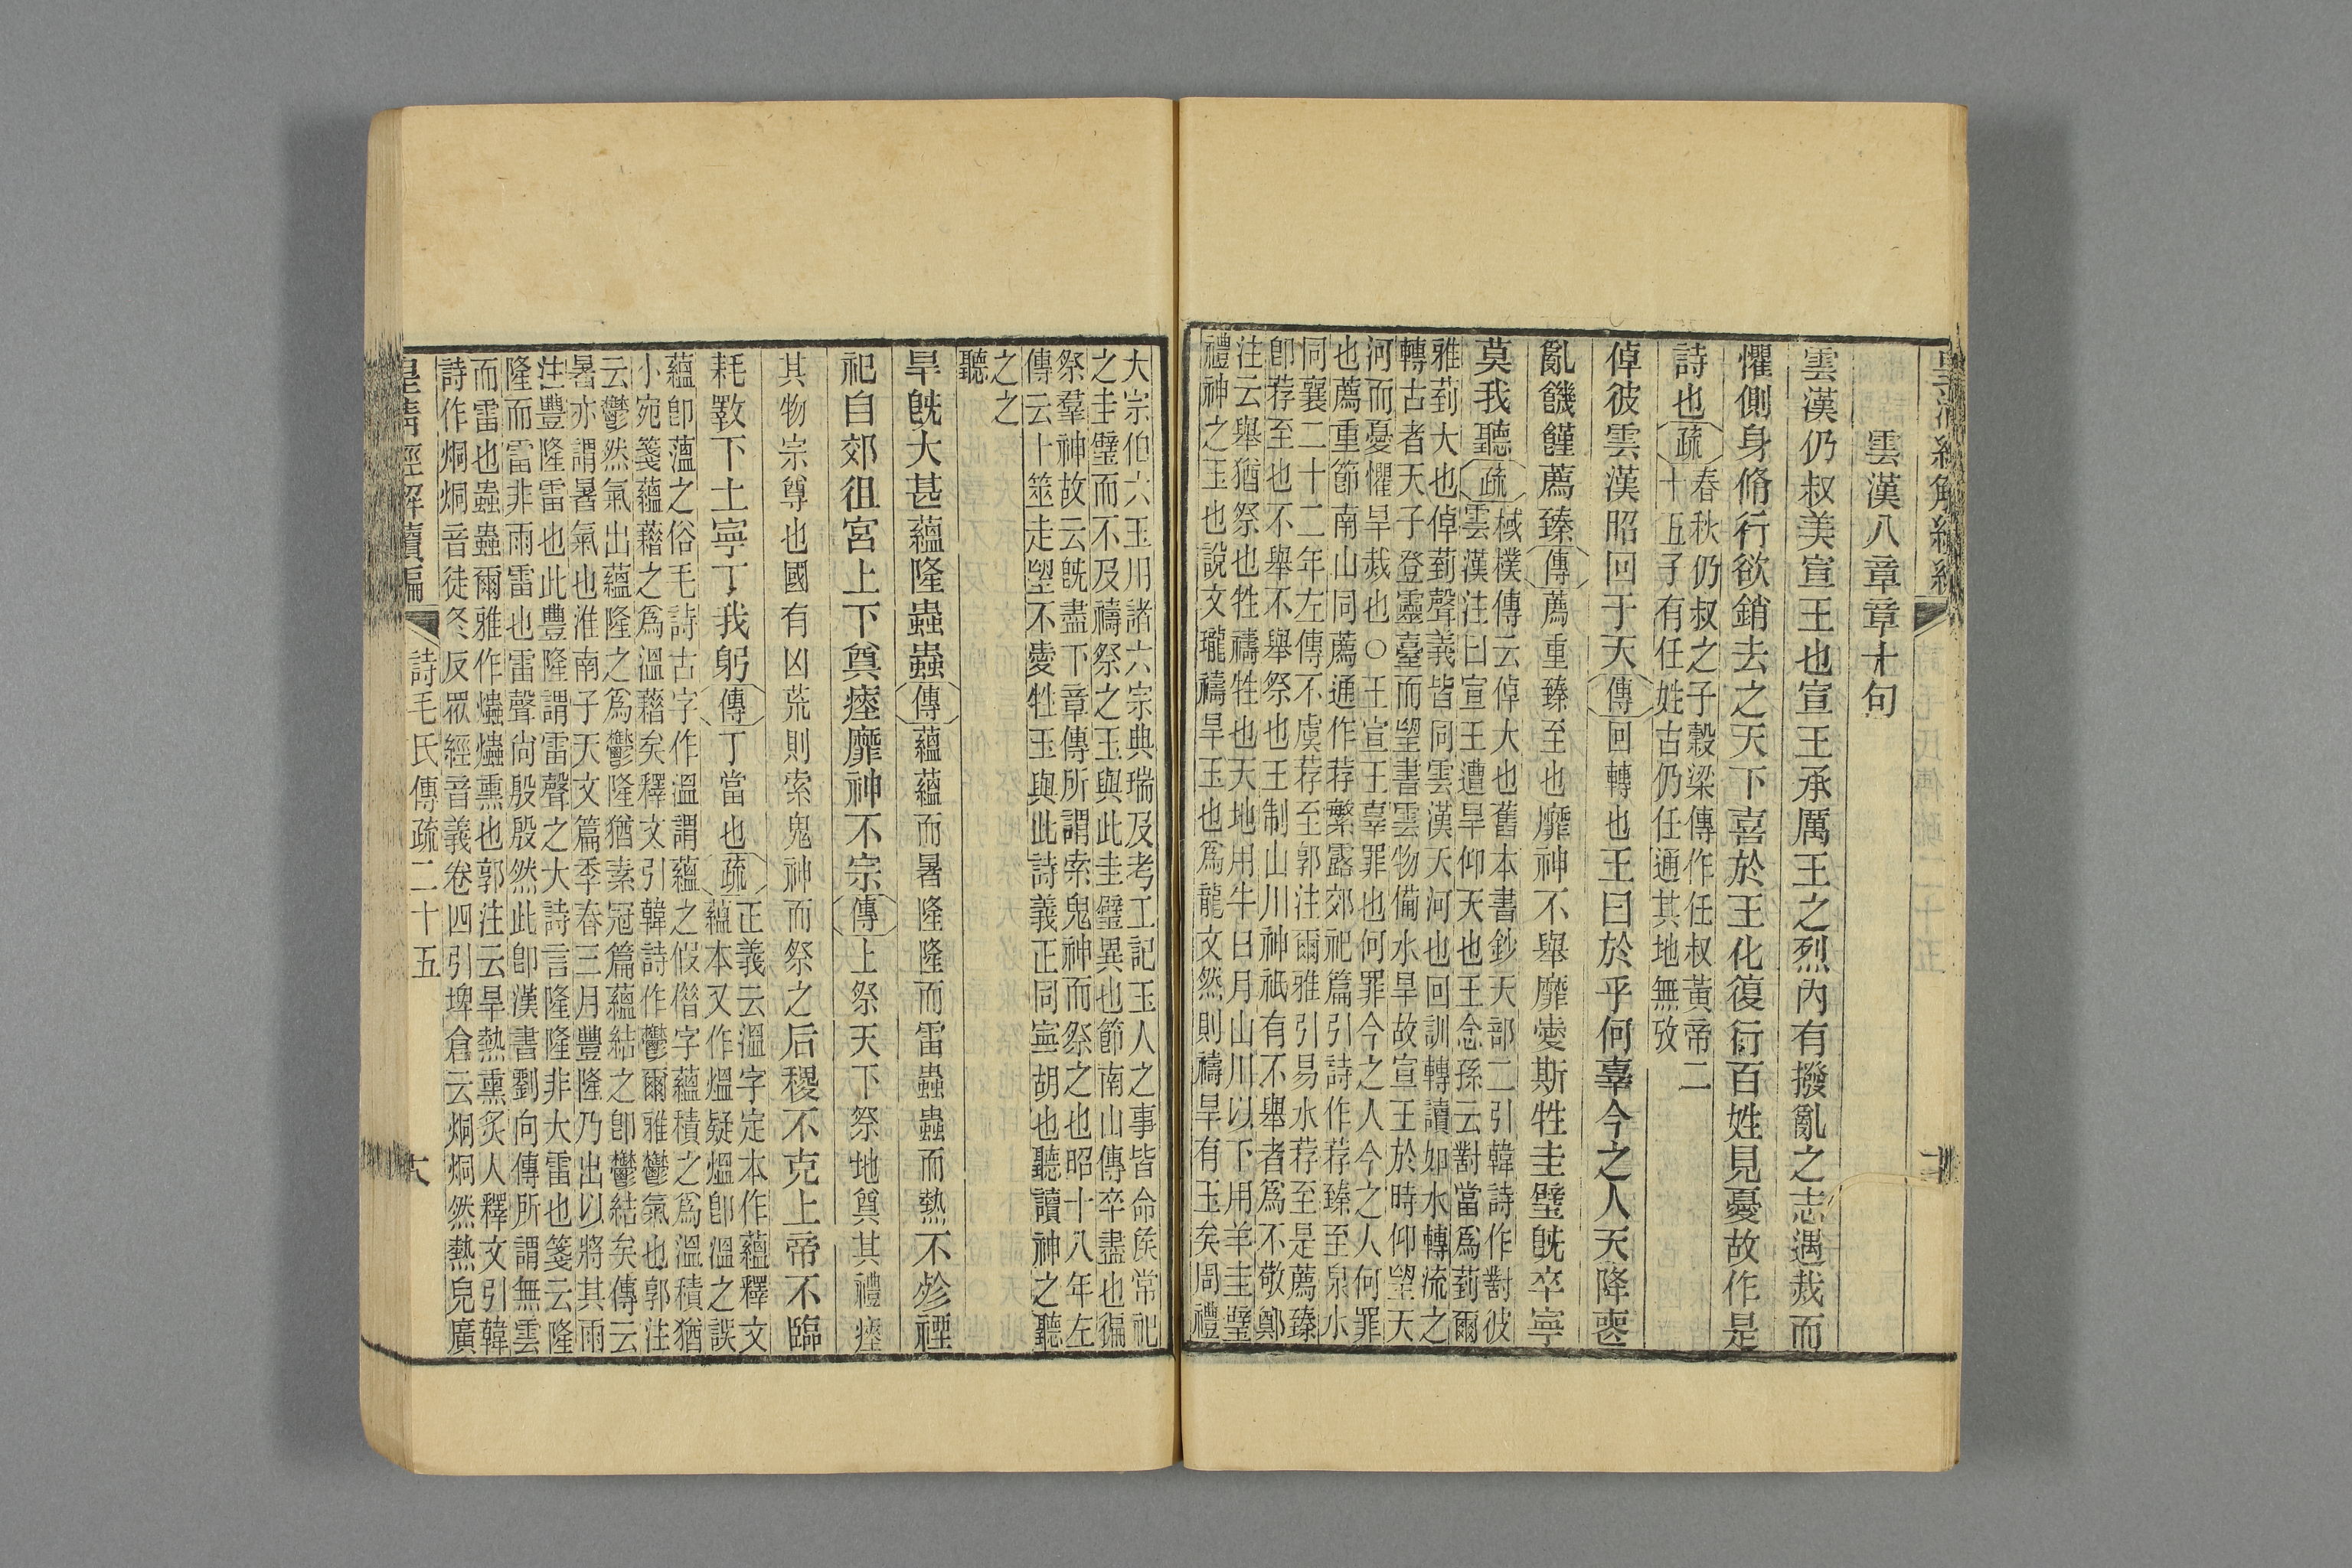 雲漢八章章十句
雲漢仍叔美宣王也宣王承厲王之烈內有撥亂之志遇烖而
懼側身脩行欲銷去之天下喜於王化復行百姓見憂故作是
詩也
疏
春秋仍叔之子穀梁傳作任叔黃帝二
十五子有任姓古仍任通其地無攷
倬彼雲漢昭回于天傳回轉也王曰於乎何辜今之人天降喪
亂饑饉薦臻傳薦重臻至也靡神不舉靡愛斯牲圭璧旣卒寧
莫我聽
疏
棫樸傳云倬大也舊本書鈔天部二引韓詩作對彼
雲漢注曰宣王遭旱仰天也王念孫云對當爲菿爾
雅菿大也倬菿聲義皆同雲漢天河也回訓轉讀如水轉流之
轉古者天子登靈臺而望書雲物備水旱故宣王於時仰望天
河而憂懼旱烖也○王宣王辜罪也何罪今之人今之人何罪
也薦重節南山同薦通作荐繁露郊祀篇引詩作荐臻至泉水
同襄二十二年左傳不虞荐至郭注爾雅引易水荐至是薦臻
卽荐至也不舉不舉祭也王制山川神祇有不舉者爲不敬鄭
注云舉猶祭也牲禱牲也天地用牛日月山川以下用羊圭璧
禮神之玉也說文瓏禱旱玉也爲龍文然則禱旱有玉矣周禮
大宗伯六玉用諸六宗典瑞及考工記玉人之事皆命矦常祀
之圭璧而不及禱祭之玉與此圭璧異也節南山傳卒盡也徧
祭羣神故云旣盡下章傳所謂索鬼神而祭之也昭十八年左
傳云卜筮走望不愛牲玉與此詩義正同寧胡也聽讀神之聽
之之
聽
旱旣大甚蘊隆蟲蟲傳蘊蘊而暑隆隆而雷蟲蟲而熱不殄禋
祀自郊徂宮上下奠瘞靡神不宗傳上祭天下祭地奠其禮瘞
其物宗尊也國有凶荒則索鬼神而祭之后稷不克上帝不臨
耗斁下土寧丁我躬傳丁當也
疏
正義云溫字定本作蘊釋文
蘊本又作熅疑熅卽溫之誤
蘊卽薀之俗毛詩古字作溫謂蘊之假借字蘊積之爲溫積猶
小宛箋蘊藉之爲溫藉矣釋文引韓詩作鬱爾雅鬱氣也郭注
云鬱然氣出蘊隆之爲鬱隆猶素冠篇蘊結之卽鬱結矣傳云
暑亦謂暑氣也淮南子天文篇季春三月豐隆乃出以將其雨
注豐隆雷也此豐隆謂雷聲之大詩言隆隆非大雷也箋云隆
隆而雷非雨雷也雷聲尙殷殷然此卽漢書劉向傳所謂無雲
而雷也蟲蟲爾雅作爞爞熏也郭注云旱熱熏炙人釋文引韓
詩作烔烔音徒冬反眾經音義卷四引埤倉云烔烔然熱皃廣
皇淸經解續編
詩毛氏傳疏二十五